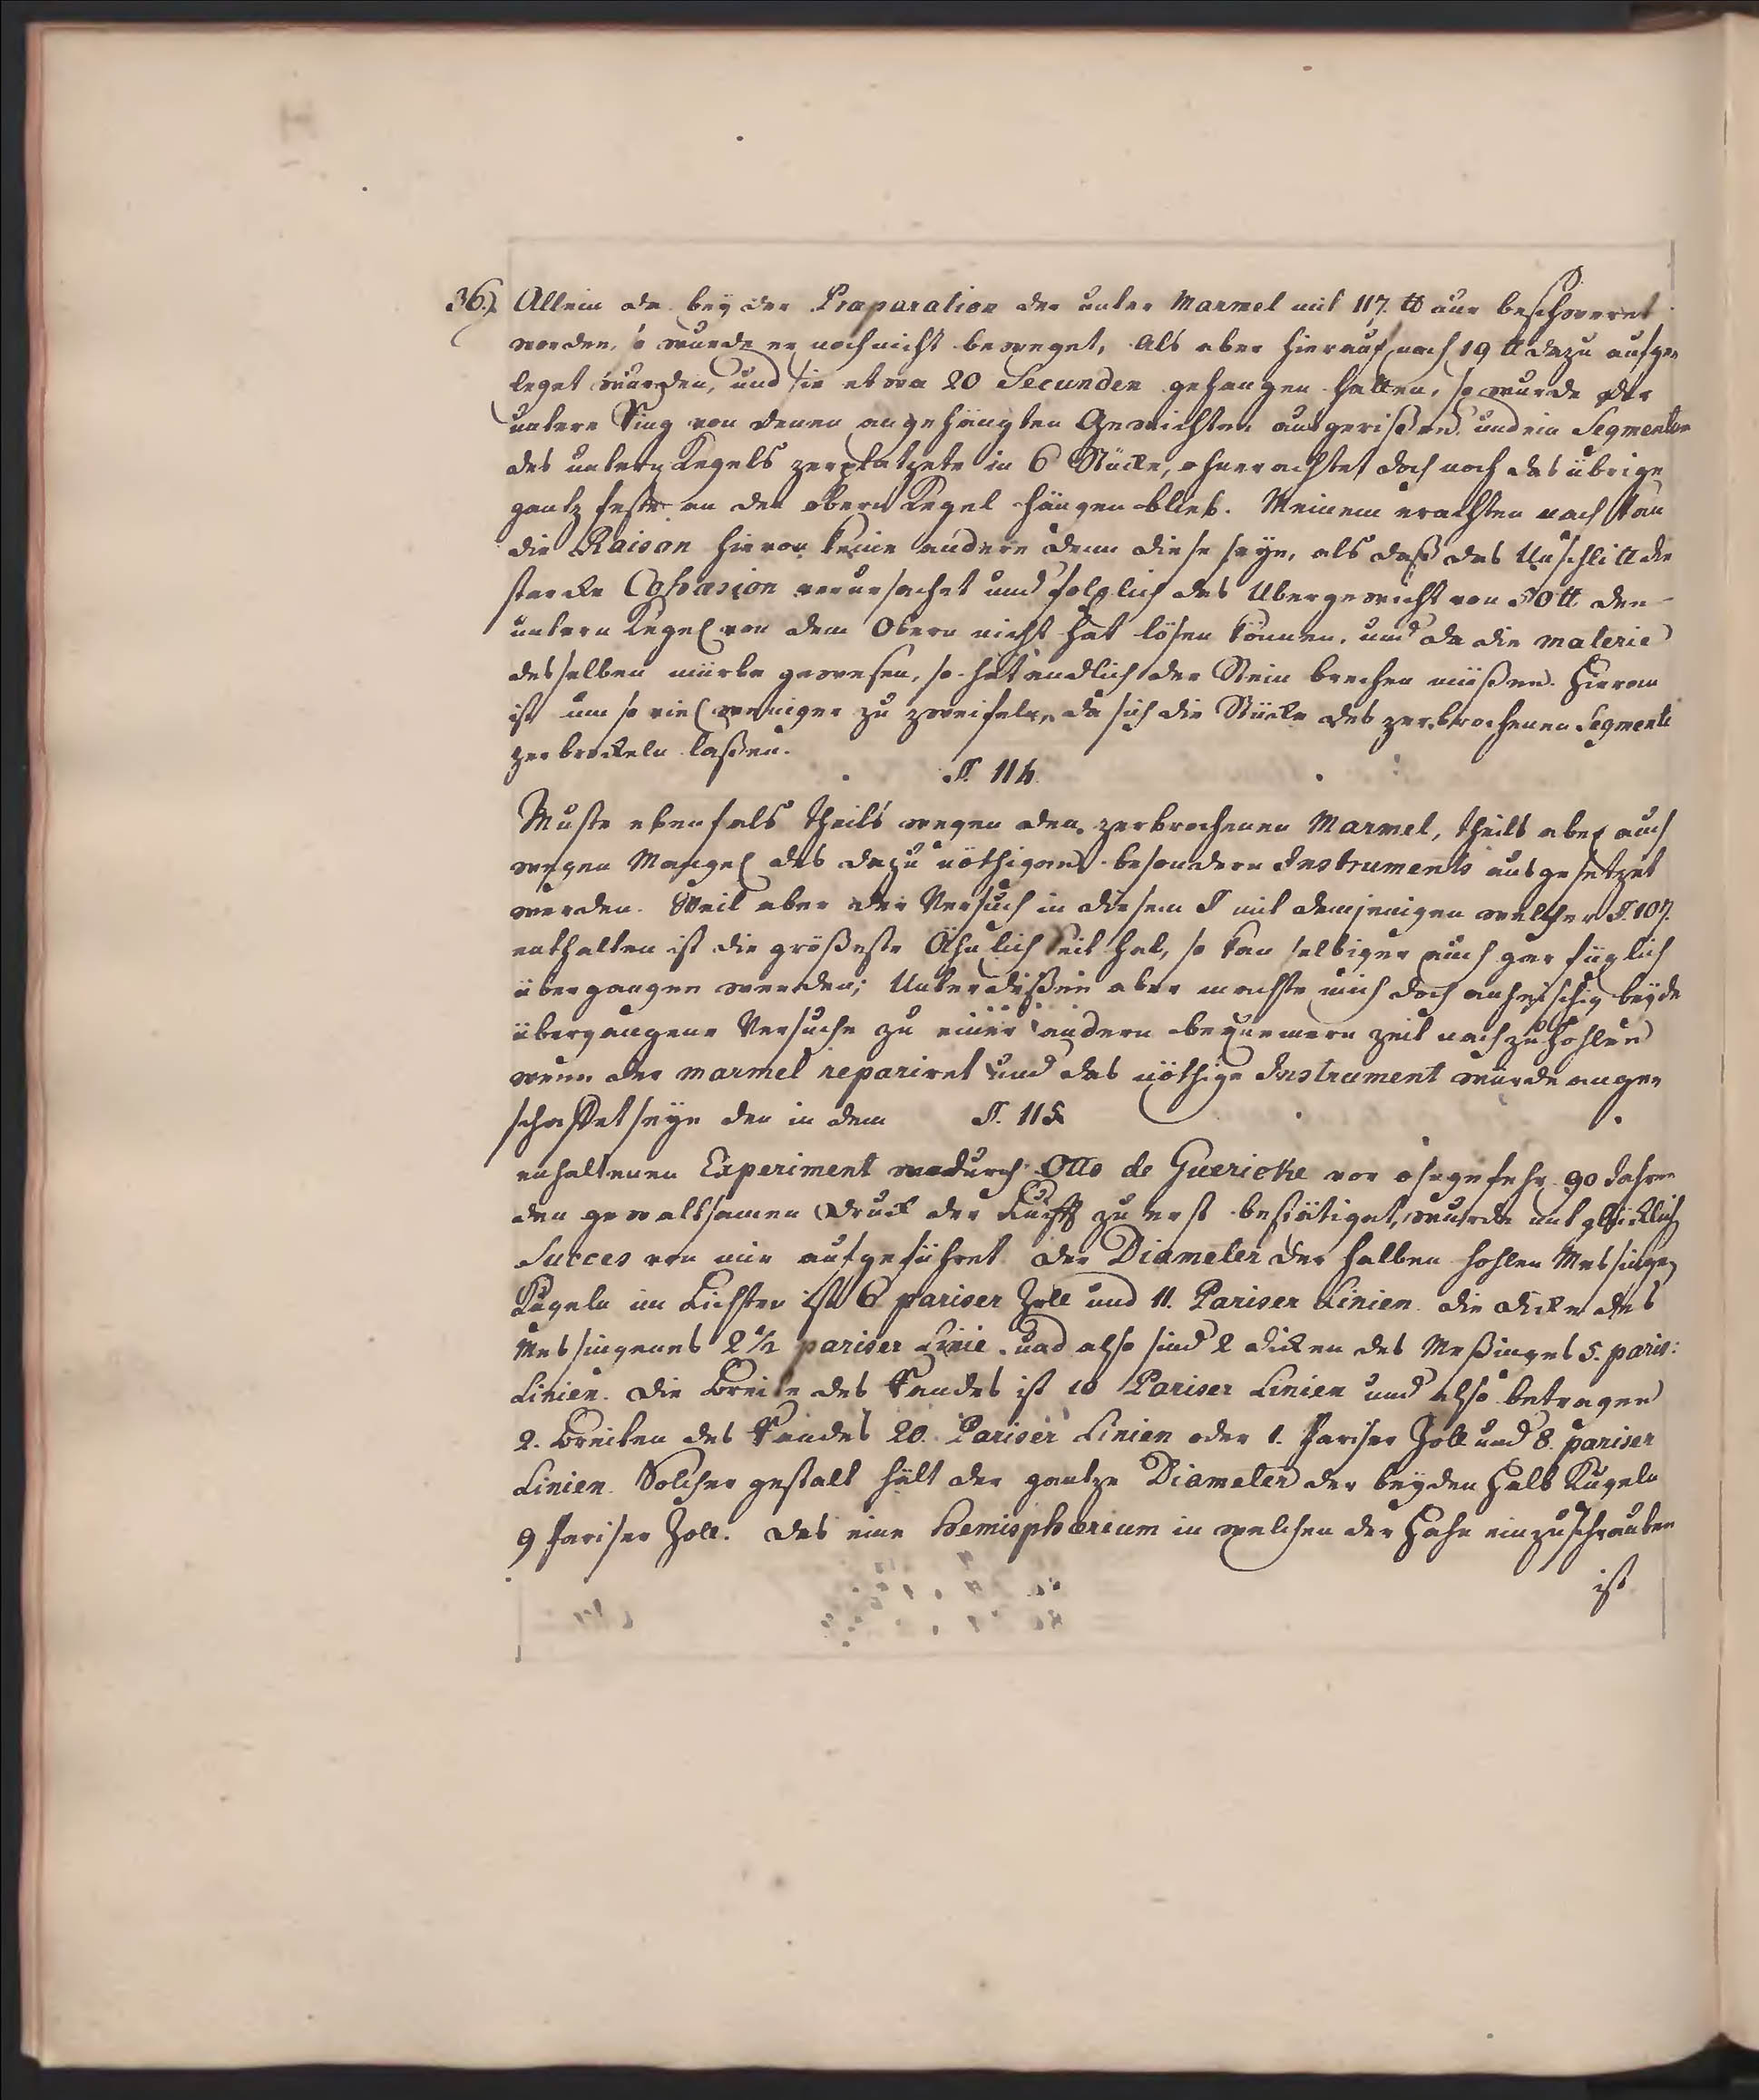 36.) Allein da bey der Præparation der unter Marmel mit 117. ℔ nur beschweret
worden, so wurde er noch nicht beweget, als aber hierauf noch 19 ℔ dazu aufge-
leget wurden, und sie etwa 20 Secunden gehangen hatten, so wurde der
untere Ring von denen angehängten Gewichten ausgerißen und ein Segment
des untern Kegels zerplatzete in 6 Stücke, ohnerachtet doch noch das übrige
gantz feste an den obern Kegel hängen blieb. Meinem erachten nach kan
die Raison hievon keine andere denn diese seyn, als daß das Unschlitt die
starcke Cohæsion verursachet und folglich das Ubergewicht von ℔ den
untern Kegel von dem Obern nicht hat lösen können, und da die materie
desselben mürbe gewesen, so hat endlich der Stein brechen müßen. Hieran
ist um so viel weniger zu zweifeln, da sich die Stücke des zerbrochenen Segmenti
zerbröckeln laßen.
§. 114.
Muste ebenfals theils wegen den zerbrochenen Marmel, theils aber auch
wegen Mangel des dazu nöthigen besondern Instruments ausgesetzet
werden. Weil aber der Versuch in diesem § mit demjenigen welcher §. 107.
enthalten ist die größeste Ähnlichkeit hat, so kan selbiger auch gar füglich
übergangen werden; Unterdeßen aber machte mich doch anheischig beyde
übergangene Versuche zu einer andern bequemern Zeit nachzuhohlen
wenn der marmel repariret und das nöthige Instrument würde ange-
schaffet seyn den in dem §. 115
enhaltenen Experiment wodurch Otto de Guericke vor ohngefehr 90 Jahren
den gewaltsamen Druck der Lufft zu erst bestätiget, wurde mit glücklich
Succes von mir aufgeführet der Diameter der halben hohlen Messinge-
Kugeln im Lichten ist 6 pariser Zoll und 11. Pariser Linien die dicke des
Messingenes 2 1/2 pariser Linie und also sind 2 dicken des Meßinges 5. paris:
Linien. die Breite des Randes ist 10 Pariser Linien und also betragen
2. Breiten des Randes 20. Pariser Linien oder 1. Pariser Zoll und 8. pariser
Linien. Solcher gestalt hält der gantze Diameter der beyden Halb Kugeln
9 Pariser Zoll. das eine Hemisphærium in welchen der Hahn einzuschrauben
ist